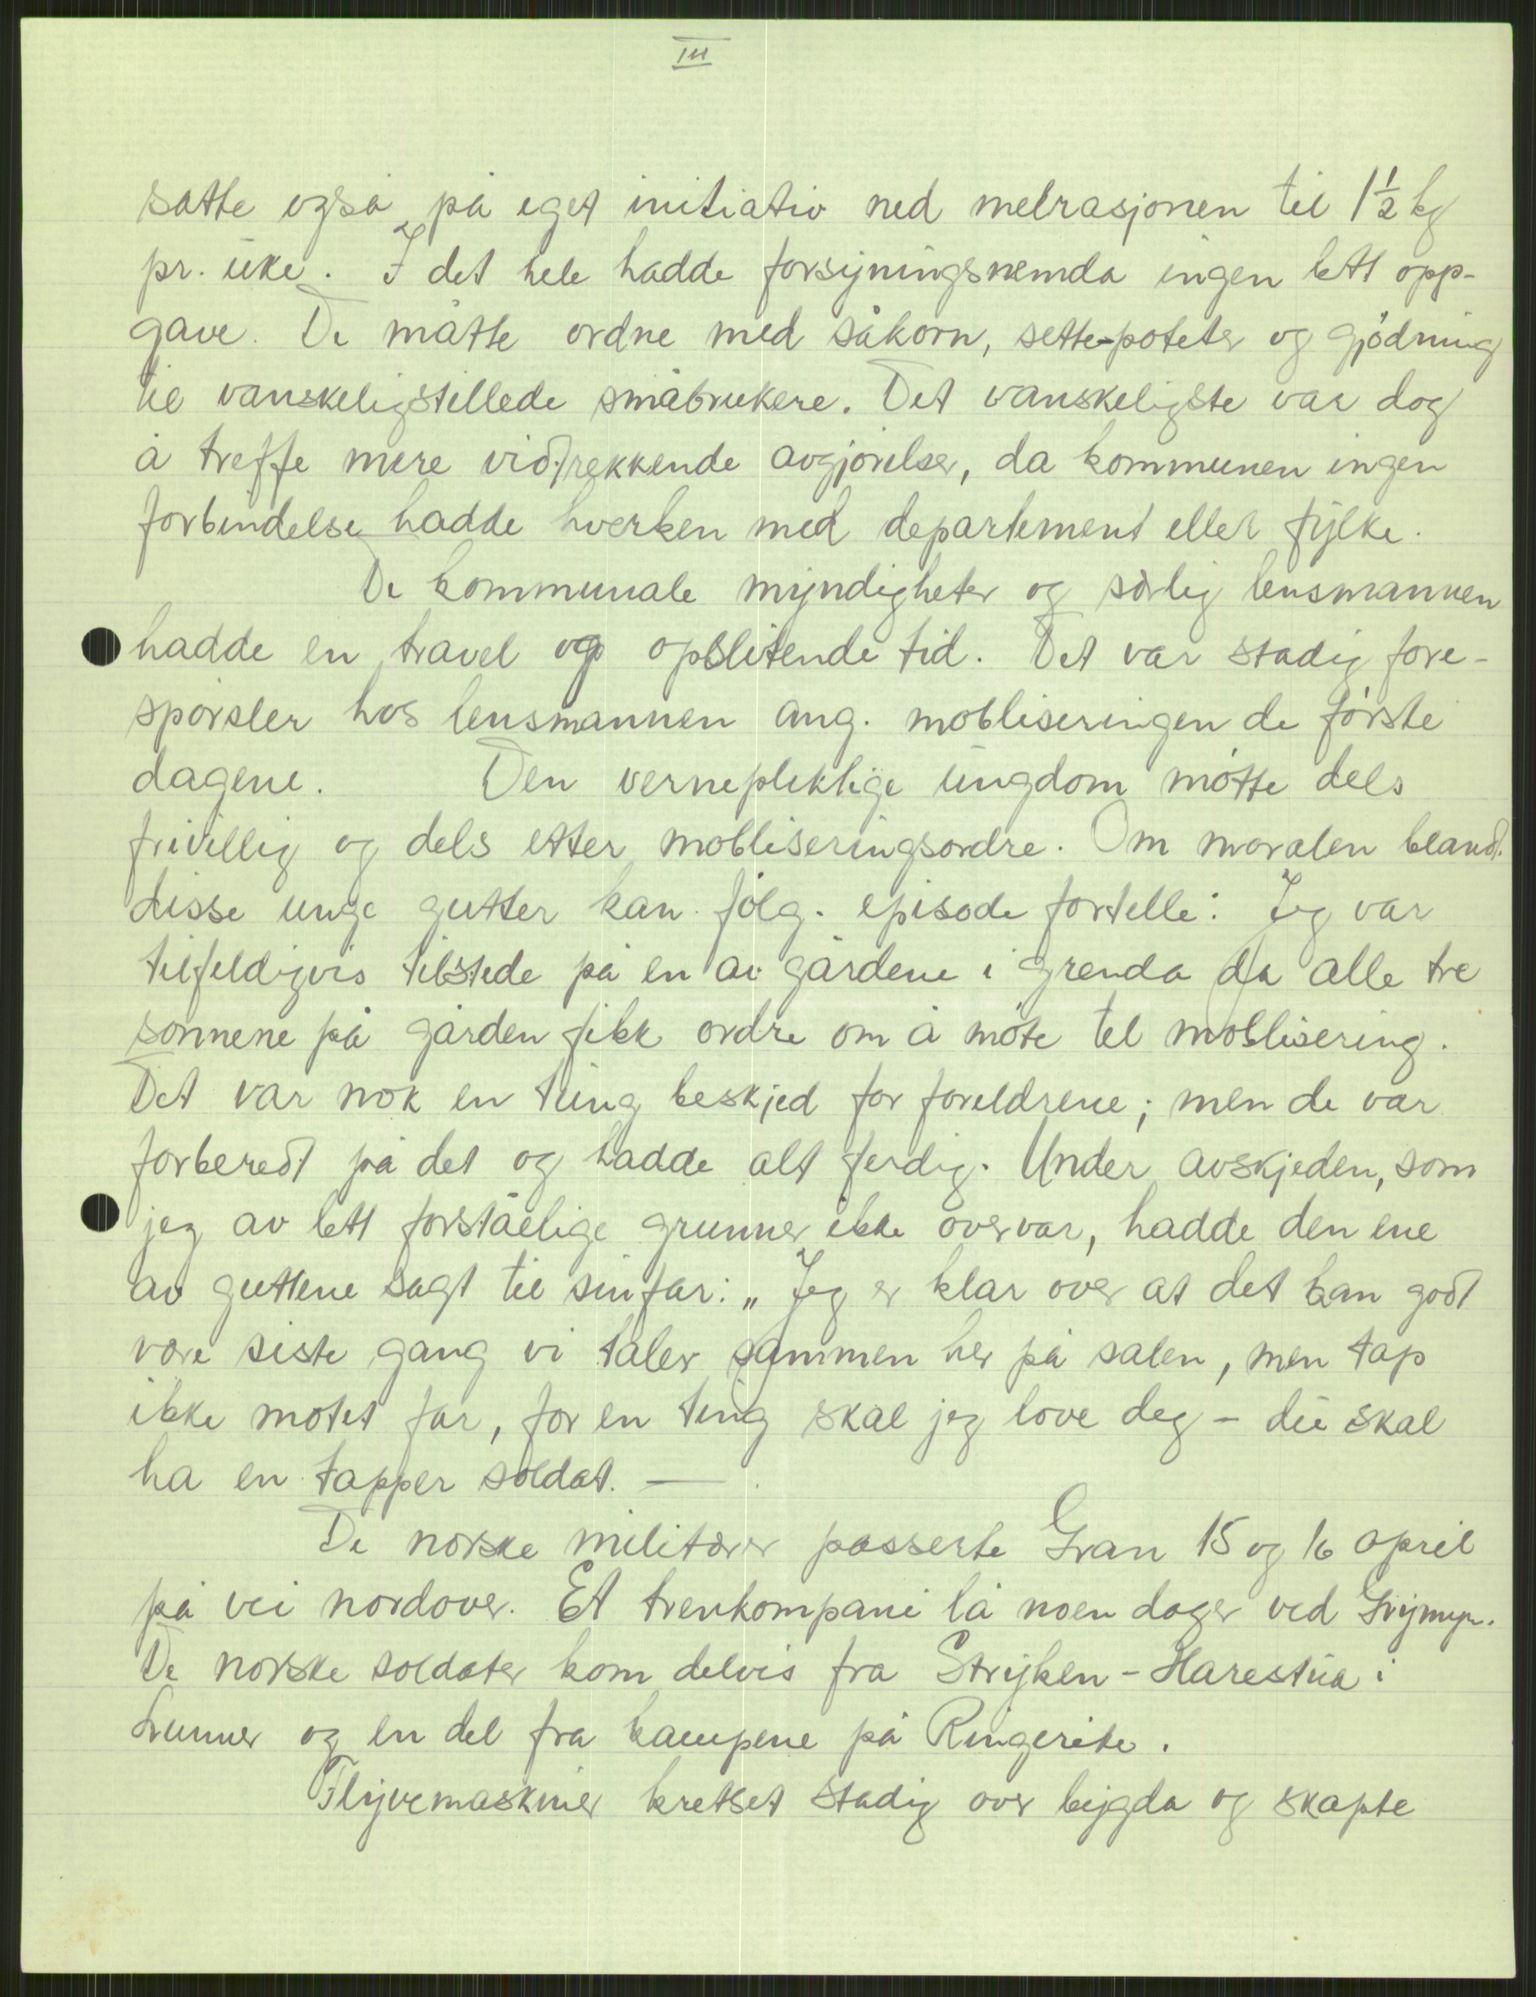 III
satte også på eget initiativ ned melrasjonen til 1½ kg
pr. uke. I det hele hadde forsyningsnemda ingen lett opp-
gave. De måtte ordne med såkorn, sette-poteter og gjødning
til vanskeligstillede småbrukere. Det vanskeligste var dog
å treffe mere vidtrekkende avgjørelser, da kommunen ingen
forbindelse hadde hverken med departement eller fylke.
De kommunale myndigheter og særlig lensmannen
hadde en travel og opslitende tid. Det var stadig fore-
spørsler hos lensmannen ang. mobliseringen de første
dagene. Den vernepliktige ungdom møtte dels
frivillig og dels etter mobliseringsordre. Om moralen blandt
disse unge gutter kan følg. episode fortelle: Jeg var
tilfeldigvis tilstede på en av gårdene i grenda da alle tre
sønnene på gården fikk ordre om å møte til moblisering.
Det var nok en tung beskjed for foreldrene; men de var
forberedt på det og hadde alt ferdig. Under avskjeden, som
jeg av lett forståelige grunner ikke overvar, hadde den ene
av guttene sagt til sin far: „Jeg er klar over at det kan godt
være siste gang vi taler sammen her på salen, men tap
ikke motet far, for en ting skal jeg love deg - du skal
ha en tapper soldat. —
De norske militærer passerte Gran 15 og 16 april
på vei nordover. Et trenkompani lå noen dager ved Grymyr.
De norske soldater kom delvis fra Stryken - Harestua i
Lunner og en del fra kampene på Ringerike.
Flyvemaskiner kretset stadig over bygda og skapte